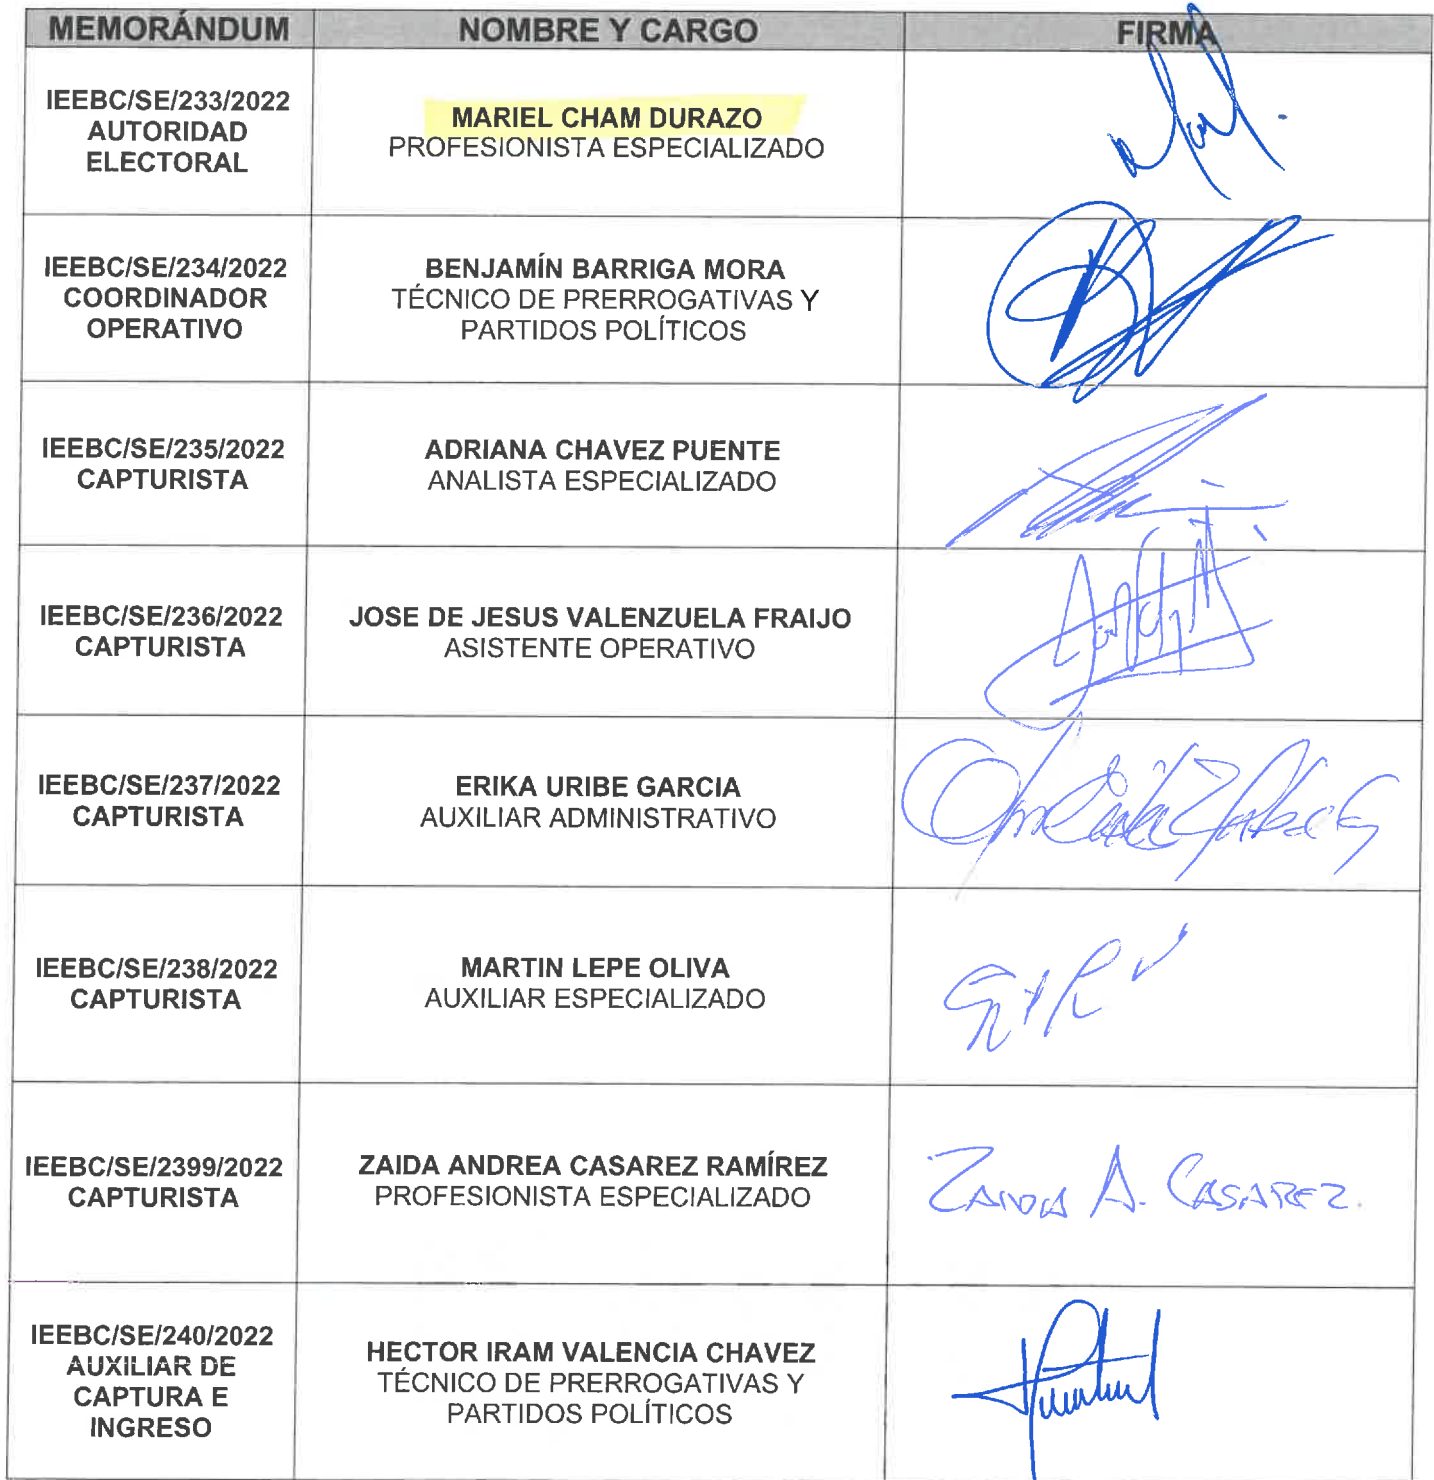 MEMORÁNDUM NOMBRE Y CARGO FIRMA
IEEBC/SE/233/2022
AUTORIDAD
ELECTORAL
MARIEL CHAM DURAZO
PROFESIONISTA ESPECIALIZADO
IEEBC/SE/234/2022
COORDINADOR
OPERATIVO
BENJAMÍN BARRIGA MORA
TÉCNICO DE PRERROGATIVAS Y
PARTIDOS POLÍTICOS
IEEBC/SE/235/2022
CAPTURISTA
ADRIANA CHAVEZ PUENTE
ANALISTA ESPECIALIZADO
IEEBC/SE/236/2022
CAPTURISTA
JOSE DE JESUS VALENZUELA FRAIJO
ASISTENTE OPERATIVO
IEEBC/SE/237/2022
CAPTURISTA
ERIKA URIBE GARCIA
AUXILIAR ADMINISTRATIVO
IEEBC/SE/238/2022
CAPTURISTA
MARTIN LEPE OLIVA
AUXILIAR ESPECIALIZADO
IEEBC/SE/2399/2022
CAPTURISTA
ZAIDA ANDREA CASAREZ RAMÍREZ
PROFESIONISTA ESPECIALIZADO
ZAIDA A. CASAREZ.
IEEBC/SE/240/2022
AUXILIAR DE
CAPTURA E
INGRESO
HECTOR IRAM VALENCIA CHAVEZ
TÉCNICO DE PRERROGATIVAS Y
PARTIDOS POLÍTICOS